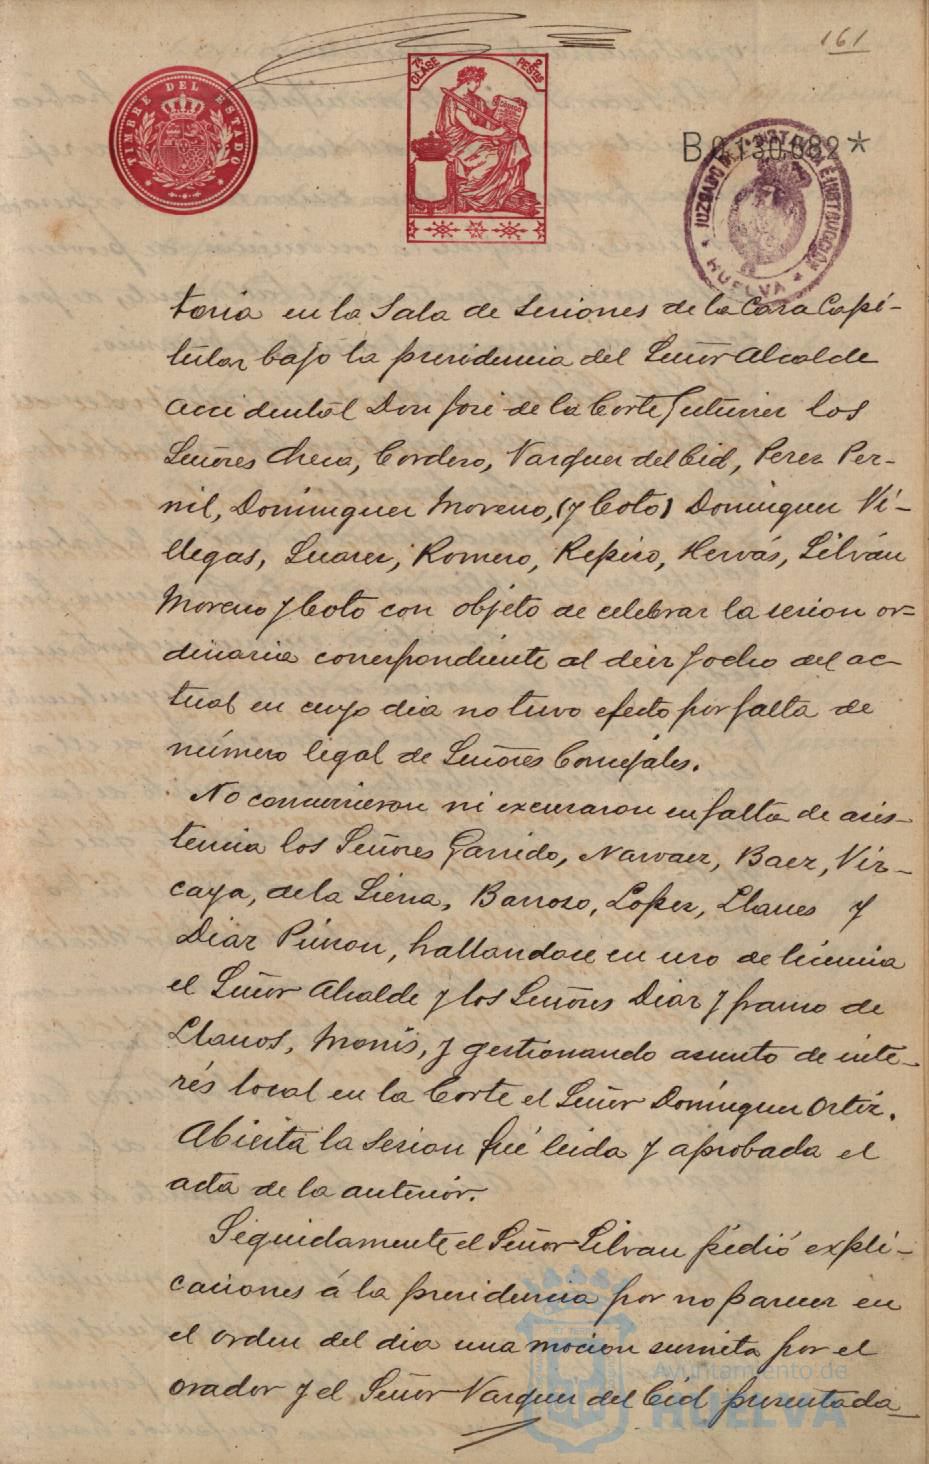 161
TIMBRE DEL ESTADO
7ª CLASE 2 PESTAS
B0.130.682*
JUZGADO DE 1ª INSTANCIA E INSTRUCCIÓN
* HUELVA *
toria en la Sala de Sesiones de la Casa Capi-
tular bajo la presidencia del Señor Alcalde
accidental Don José de la Corte Gutierrez los
Señores Checa, Cordero, Vazquez del Cid, Perez Per-
nil, Dominguez Moreno, (y Coto) Dominguez Vi-
llegas, Suarez, Romero, Repiso, Hervás, Silván
Moreno y Coto con objeto de celebrar la sesion or-
dinaria correspondiente al diez y ocho del ac-
tual en cuyo dia no tuvo efecto por falta de
número legal de Señores Concejales.
No concurrieron ni excusaron su falta de asis-
tencia los Señores Garrido, Narvaez, Baez, Viz-
caya, de la Sierra, Barroso, Lopez, Llanes y
Diaz Pinzon, hallandose en uso de licencia
el Señor Alcalde y los Señores Diaz y franco de
Llanos, Monis, y gestionando asunto de inte-
rés local en la Corte el Señor Dominguez Ortiz.
Abierta la Sesion fué leida y aprobada el
acta de la anterior.
Seguidamente el Señor Silvan pidió expli-
caciones á la presidencia por no parecer en
el orden del dia una mocion suscrita por el
orador y el Señor Vazquez del Cid presentada
Ayuntamiento de
HUELVA